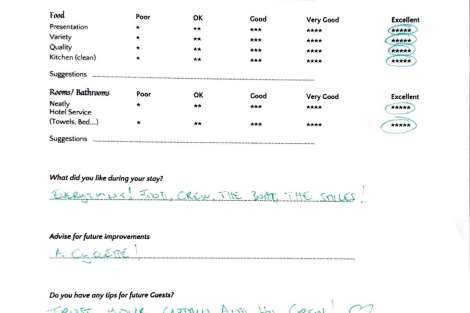 Food Poor OK Good Very Good Excellent
Presentation * ** *** **** *****
Variety * ** *** **** *****
Quality * ** *** **** *****
Kitchen (clean) * ** *** **** *****
Suggestions
Rooms/ Bathrooms Poor OK Good Very Good Excellent
Neatly * ** *** **** *****
Hotel Service
(Towels, Bed....) * ** *** **** *****
Suggestions
What did you like during your stay?
EVERYTHING! FOOD, CREW, THE BOAT, THE SMILES!
Advise for future improvements
A
Do you have any tips for future Guests?
TRUST YOUR CAPTAIN AND CREW!